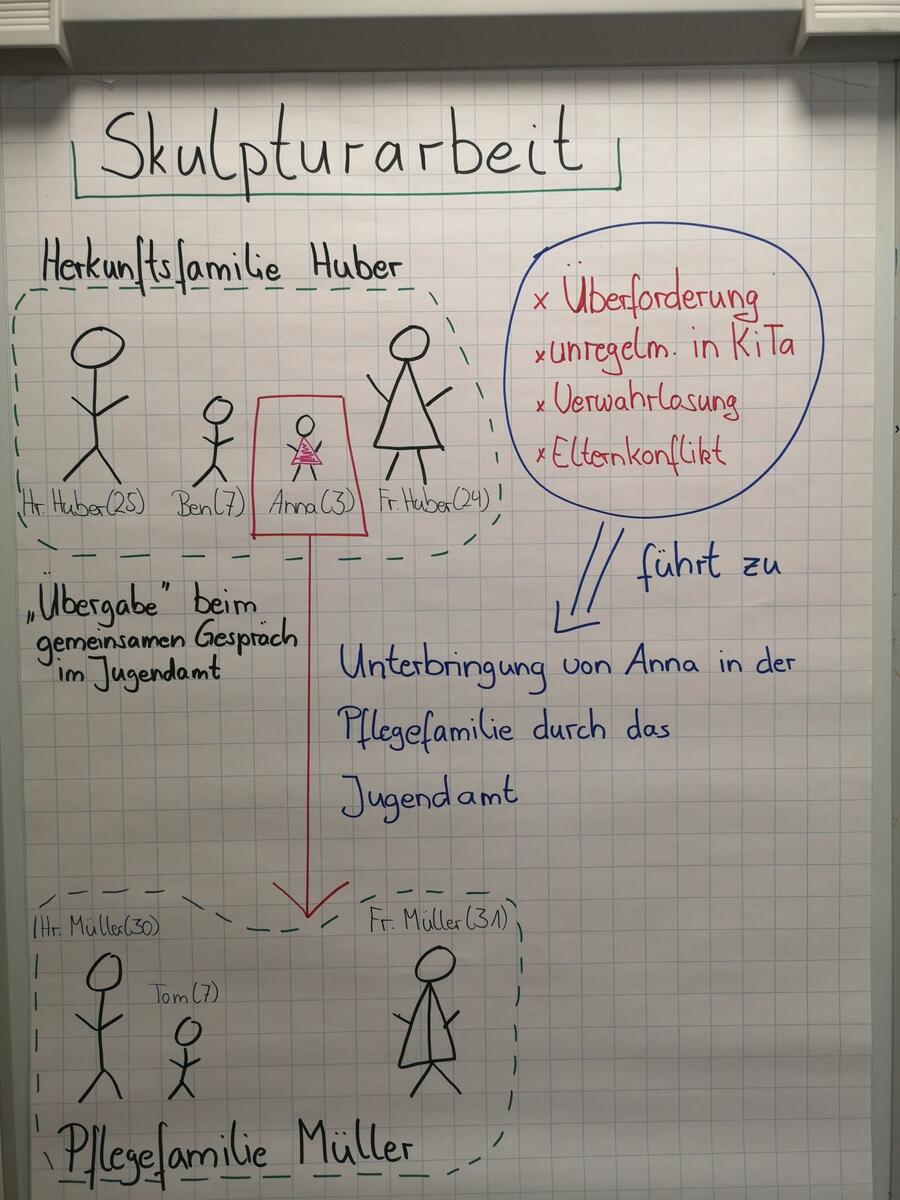 Skulpturarbeit
Herkunftsfamilie Huber
Hr. Huber(25)
Ben(7)
Anna(3)
Fr. Huber(24)
x Überforderung
x unregelm. in KiTa
x Verwahrlosung
x Elternkonflikt
führt zu
„Übergabe" beim
gemeinsamen Gespräch
im Jugendamt
Unterbringung von Anna in der
Pflegefamilie durch das
Jugendamt
Hr. Müller(30)
Tom(7)
Fr. Müller(31)
Pflegefamilie Müller